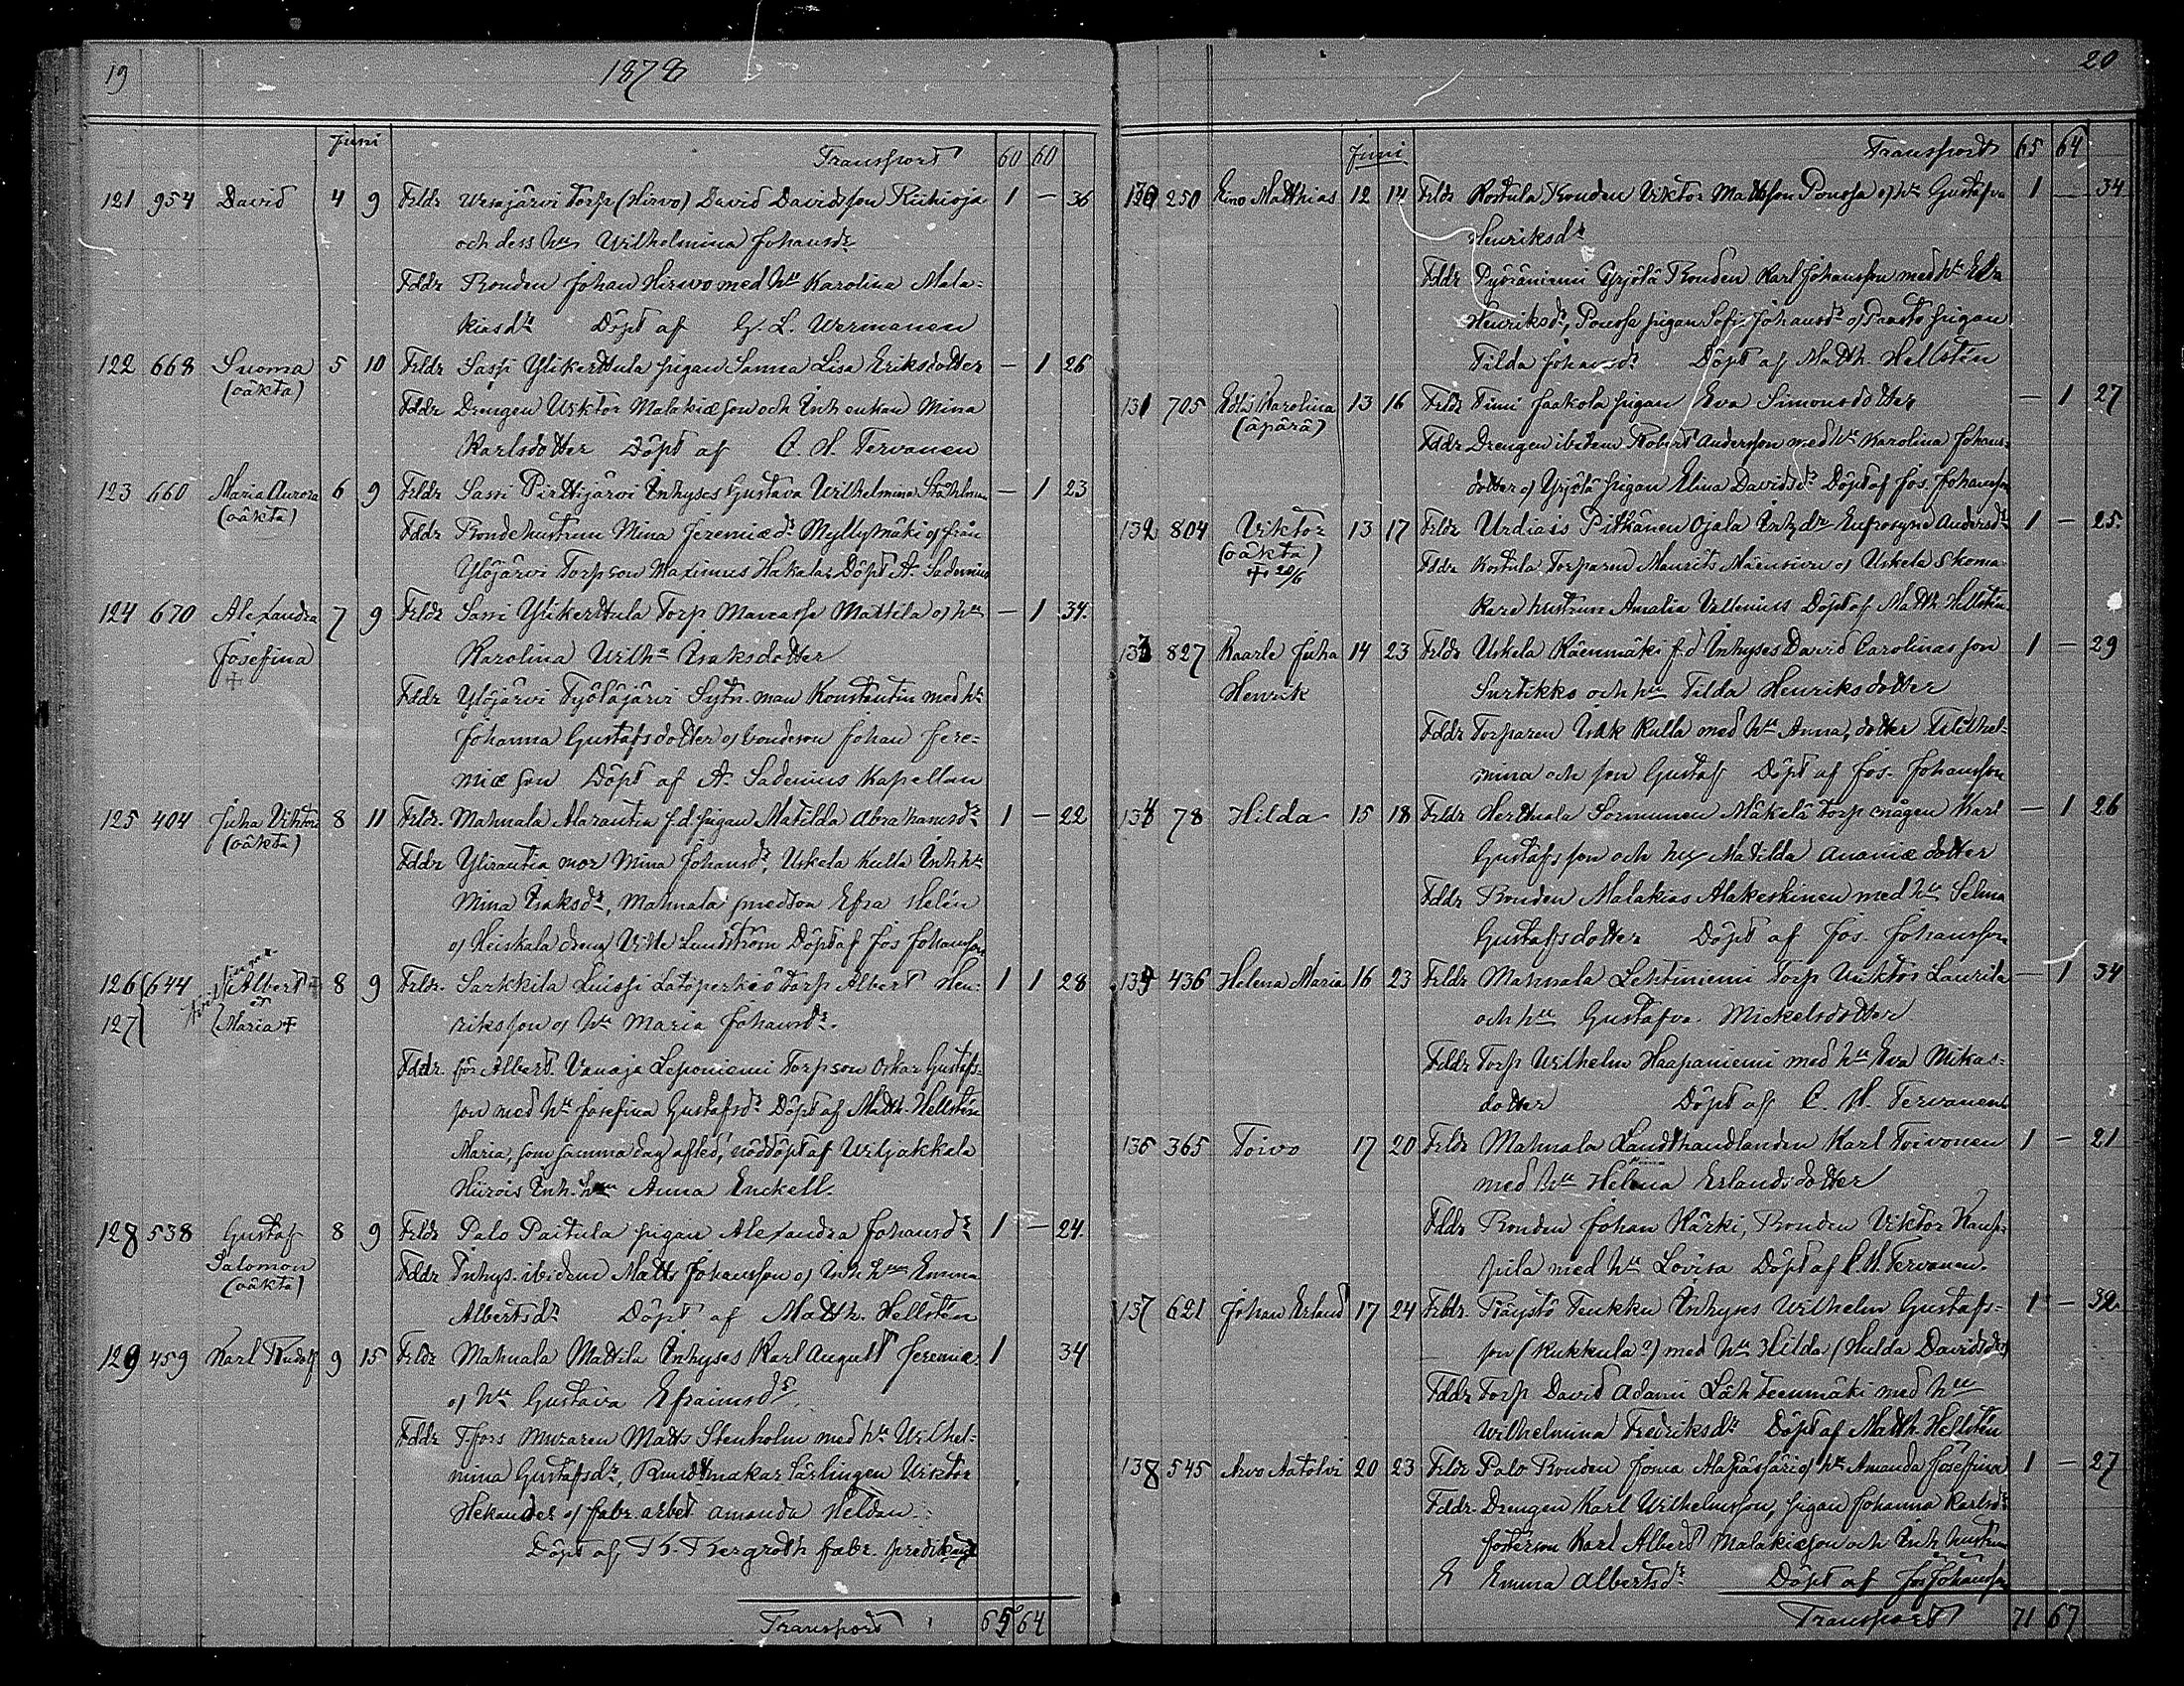 19
1878
Juni
Transport 60 60
121 954 David 4 9 Frldr Ursajärvi Torp (Hirvo) David Davidsson Riihioja 1 — 36
och dess hu Wilhelmina Johansdr
Fddr Bonden Johan Hirwo med hu Karolina Mala=
kiasdr Döpt af G. L. Wermanen
122 668 Suoma 5 10 Frldr Sassi Ylikerttula pigan Sanna Lisa Eriksdotter — 1 26
(oäkta)
Fddr Drengen Viktor Malakiæson och Inh enkan Mina
Karlsdotter Döpt af C. H. Tervanen
123 660 Maria Aurora 6 9 Frldr Sassi Pirttijärvi Inhyses Gustava Wilhelmina Ståhlman — 1 23
(oäkta)
Fddr Bondehustrun Mina Jeremiæd. Myllymäki of från
Ylöjärvi Torpson Maximus Hakala Döpt A. Sadenius
124 670 Alexandra 7 9 Frldr Sassi Ylikerttula Torp Mattila of hu — 1 34.
Josefina Karolina Wilha Isaksdotter
+
Fddr Ylöjärvi Työläjärvi Sytn. man Konstantin med hu
Johanna Gustafsdotter of bondeson Johan Jere=
miæson Döpt af A. Sadenius Kapellan
125 404 Juha Viktor 8 11 Frldr. Mahnala Alarautia f.d pigan Matilda Abrahamsdr 1 — 22
(oäkta)
Fddr Ylirautia mor Mina Johansdr, Uskela Kulla Inh hu
Mina Isaksdr, Mahnala smedson Efra Helén
of Heiskala dreng Ville Lundström Döpt af Jos Johansson
126 644 Albert + 8 9 Frldr. Sarkkila Luissi Latoperkiö Torp Albert Hen= 1 1 28
127 Maria + riksson of hu Maria Johansdr.
Fddr. för Albert Vanaja Leponiemi Torpson Oskar Gustafs=
son med hu Josefina Gustafsdr Döpt af Matth. Hellstén
Maria, som samma dag afled, nöddöpt af Wiljakkala
Hiirois Inh. hu Anna Enckell.
128 538 Gustaf 8 9 Frldr Palo Paitula pigan Alexandra Johansdr 1 — 24.
Salomon
(oäkta)
Fddr Inhys. ibidem Matts Johansson of Inh hun Emma
Albertsdr Döpt af Matth. Hellstén
129 459 Karl Rudolf 9 15 Frldr Mahnala Mattila Inhyses Karl August Jeremiæ. 1 34
of hu Gustava Efraimsdr.
Fddr T.fors muraren Matts Stenholm med hu Wilhel=
mina Gustafsdr, Buntmakar lärlingen Viktor
Hekander of fabr. arbet Amanda Heldan.
Döpt af Th. Bergroth fabr. predikant
Transport 65 64
20
Juni
Transport 65 64
130 250 Eino Matthias 12 14 Frldr Rostula Bonden Viktor Mattsson Poussa of hu Gustafva 1 — 34
Henriksdr
Fddr Pyöräniemi Yrjölä Bonden Karl Johansson med hu Eva
Henriksdr, Poussa pigan Sofi Johansdr of Paasto pigan
Tilda Johansdr Döpt af Matth. Hellstén
131 705 Edla Karolina 13 16 Frldr Timi Jaakola pigan Eva Simonsdotter — 1 27
(äpärä)
Fddr Drengen ibidem Robert Andersson med hu Karolina Johans=
dotter of Yrjölä pigan Elina Davidsdr Döpt af Jos. Johansson
132 804 Viktor 13 17 Frldr Urdiass Pitkänen Ojala Inh dr Eufrosyne Andersdr 1 — 25.
(oäkta)
+ 20/6
Fddr Rostula Torparen Maurits Mäensivu of Uskela Skoma
kare hustrun Amalia Vellenius Döpt af Matth Hellstén
133 827 Kaarle Juha 14 23 Frldr Uskela Käenmäki f.d Inhyses David Carolinas son 1 — 29
Henrik Surtikko och hu Tilda Henriksdotter
Fddr Torparen Isak Kulla med hu Anna, dotter Wilhel=
mina och son Gustaf Döpt af Jos. Johansson
134 78 Hilda 15 18 Frldr Herttuala Sormunen Mäkelä torp mågen Karl — 1 26
Gustafsson och hu Matilda Ananiædotter
Fddr Bonden Malakias Alakeskinen med hu Selma
Gustafsdotter Döpt af Jos. Johansson
135 436 Helena Maria 16 23 Frldr Mahnala Lehtiniemi Torp Viktor Laurila — 1 34
och hu Gustafva Mickelsdotter
Fddr Torp Wilhelm Haapaniemi med hu Eva Mikas=
dotter Döpt af C. H. Tervanen
136 365 Toivo 17 20 Frldr Mahnala Landthandlanden Karl Toivonen 1 — 21
med hu Helena Erlandsdotter
Fddr Bonden Johan Kärki, Bonden Viktor Kaup=
pila med hu Lovisa Döpt af C. H. Tervanen.
137 621 Johan Erland 17 24 Frldr. Päystö Teukku Inhyses Wilhelm Gustafs= 1 — 32.
son (Kukkula?) med hu Hilda (Hulda Davidsdr)
Fddr Torp David Adami Lähteenmäki med hu
Wilhelmina Fredriksdr Döpt af Matth. Hellstén
138 545 Arvo Aatolvi 20 23 Frldr Palo Bonden Josua Alapässäri of hu Amanda Josefina 1 — 27
Fddr. Drengen Karl Wilhelmsson, pigan Johanna Karlsdr
fosterson Karl Albert Malakiæson och Inh hustrun
E Emma Albertsdr Döpt af Jos Johansson
Transport 71 67